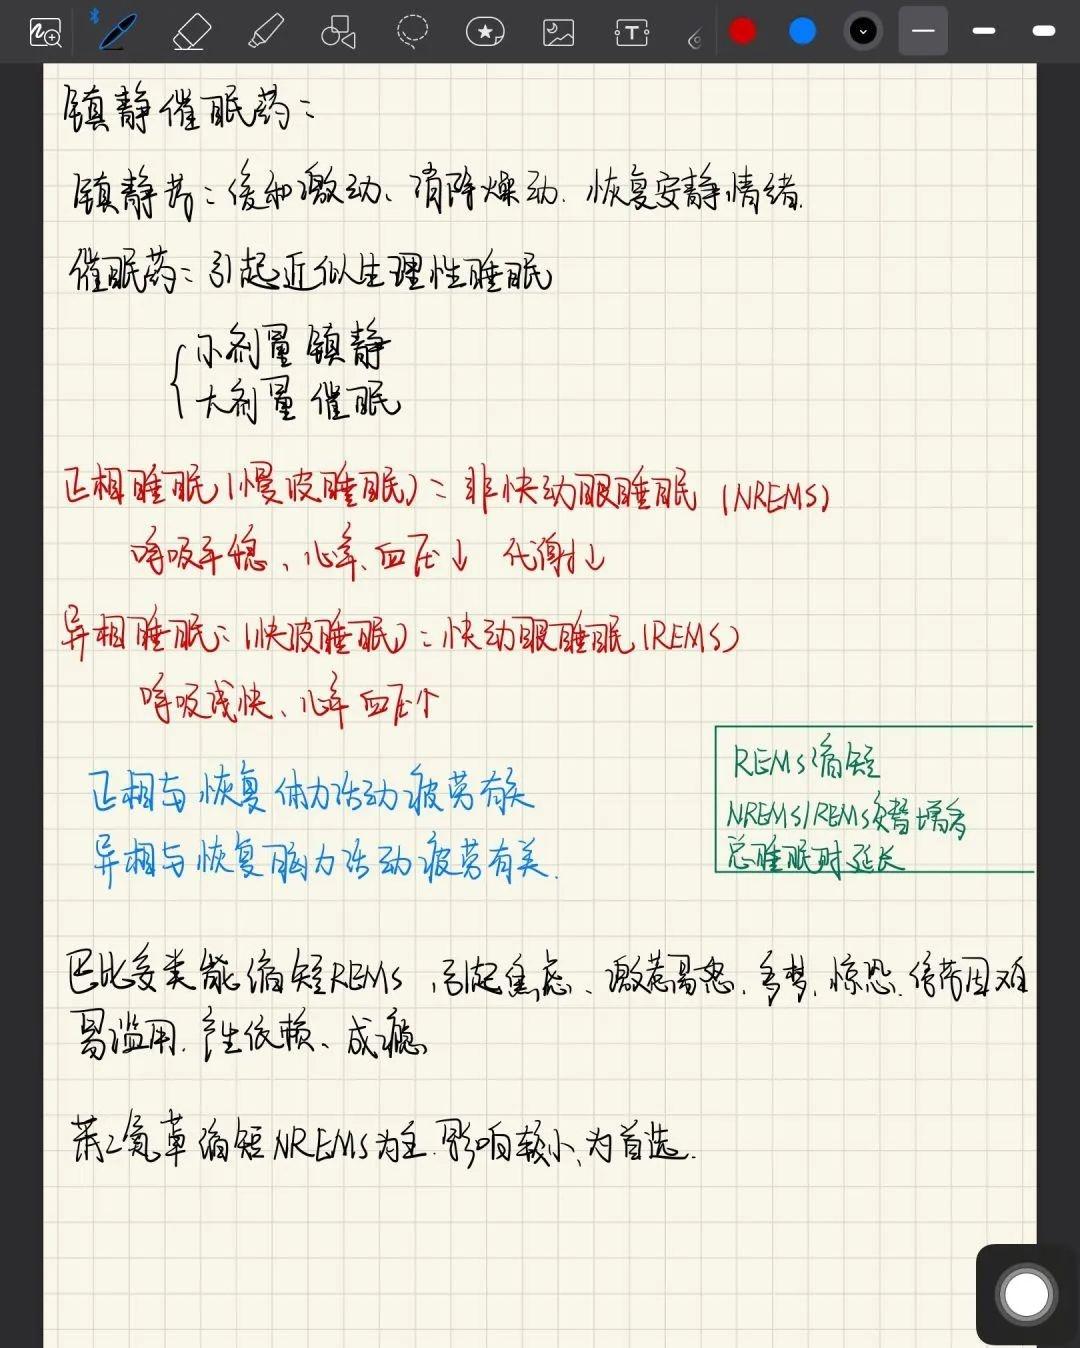 镇静催眠药：
镇静药：缓和激动、消除燥动、恢复安静情绪.
催眠药：引起近似生理性睡眠
小剂量 镇静
大剂量 催眠
正相睡眠(慢波睡眠)：非快动眼睡眠 (NREMS)
呼吸平稳、心率、血压↓ 代谢↓
异相睡眠：(快波睡眠)：快动眼睡眠(REMS)
呼吸浅快、心率血压↑
正相与恢复体力活动疲劳有关
异相与恢复脑力活动疲劳有关.
REMS缩短
NREMS/REMS交替增多
总睡眠时延长
巴比妥类能缩短REMS，引起焦虑、激惹易怒、多梦、惊恐、停药困难
易滥用、产生依赖、成瘾
苯二氮草缩短NREMS为主.影响较小、为首选.